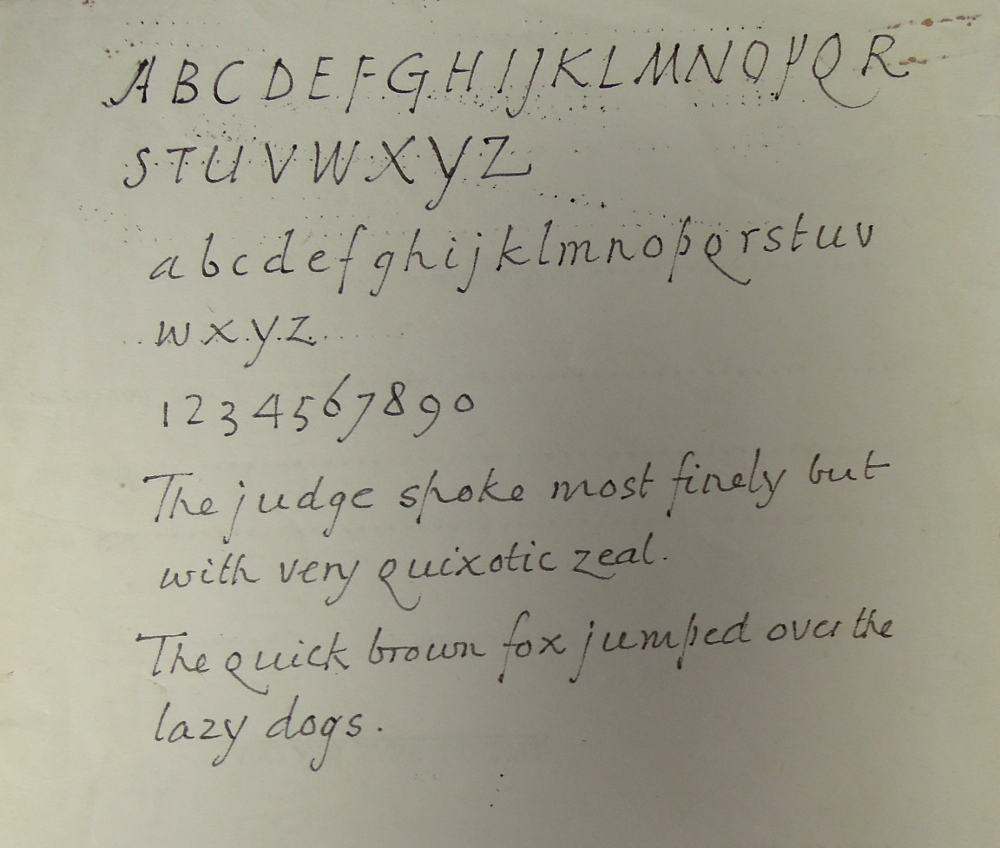 A B C D E F G H I J K L M N O P Q R
S T U V W X Y Z
a b c d e f g h i j k l m n o p q r s t u v
w x y z
1 2 3 4 5 6 7 8 9 0
The judge spoke most finely but
with very quixotic zeal.
The quick brown fox jumped over the
lazy dogs.